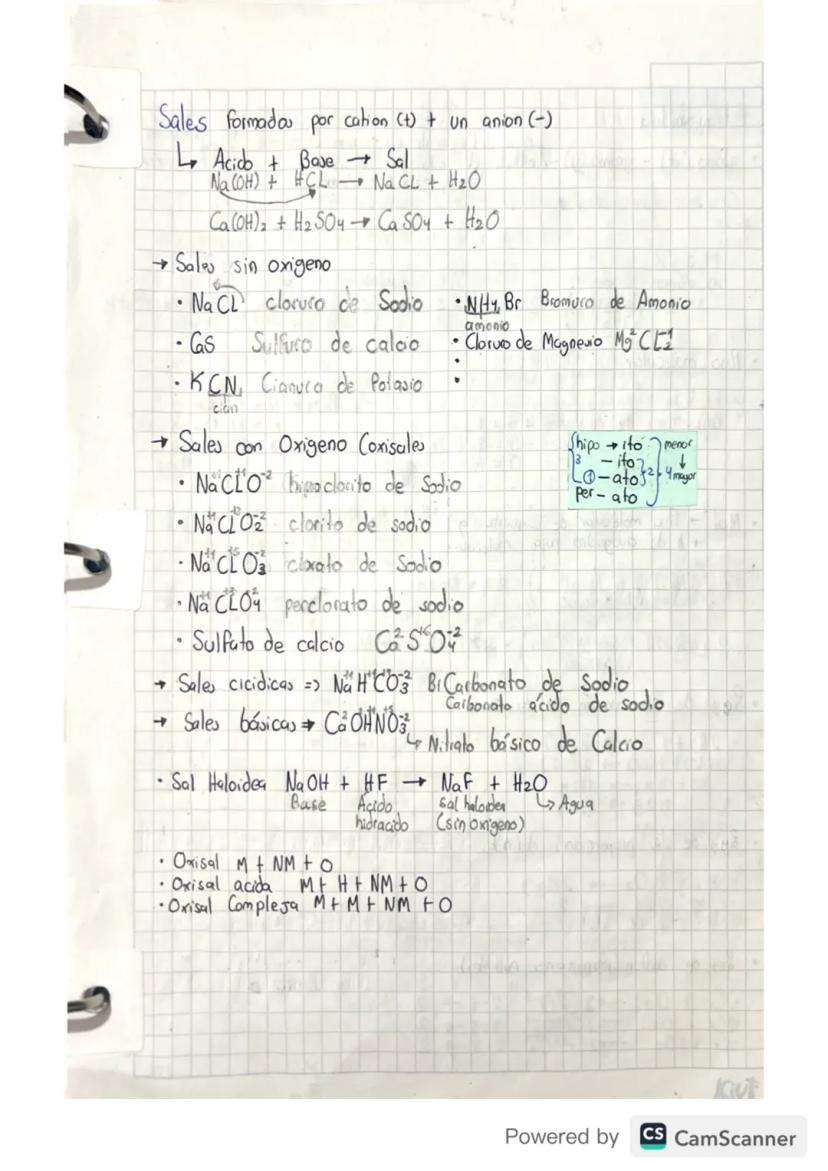 Sales formadas por cation (+) + un anion (-)
↳ Acido + Base → Sal
Na(OH) + HCL → NaCL + H2O
Ca(OH)2 + H2SO4 → CaSO4 + H2O
→ Sales sin oxigeno
• NaCL cloruro de Sodio
• CaS Sulfuro de calcio
• KCN Cianuro de Potasio
cian
• NH4 Br Bromuro de Amonio
amonio
• Cloruro de Magnesio Mg+2 CL2-1
•
•
→ Sales con Oxigeno (oxisales
• NaCLO-2 hipoclorito de Sodio
• NaCLO2-2 clorito de sodio
• NaCLO3-2 clorato de Sodio
• NaCLO4 perclorato de sodio
• Sulfato de calcio Ca+2 S+6 O4-2
hipo → ito
3 - ito
① - ato
per - ato
2 4
menor
↓
mayor
→ Sales cicidicas => NaHCO3-2 BiCarbonato de Sodio
Carbonato ácido de sodio
→ Sales básicas → CaOHNO3-2
↳ Nitrato básico de Calcio
• Sal Haloidea NaOH + HF → NaF + H2O
Base Acido Sal haloidea ↳ Agua
hidracido (sin oxigeno)
• Oxisal M + NM + O
• Oxisal acida M + H + NM + O
• Oxisal Compleja M + M + NM + O
Powered by CS CamScanner